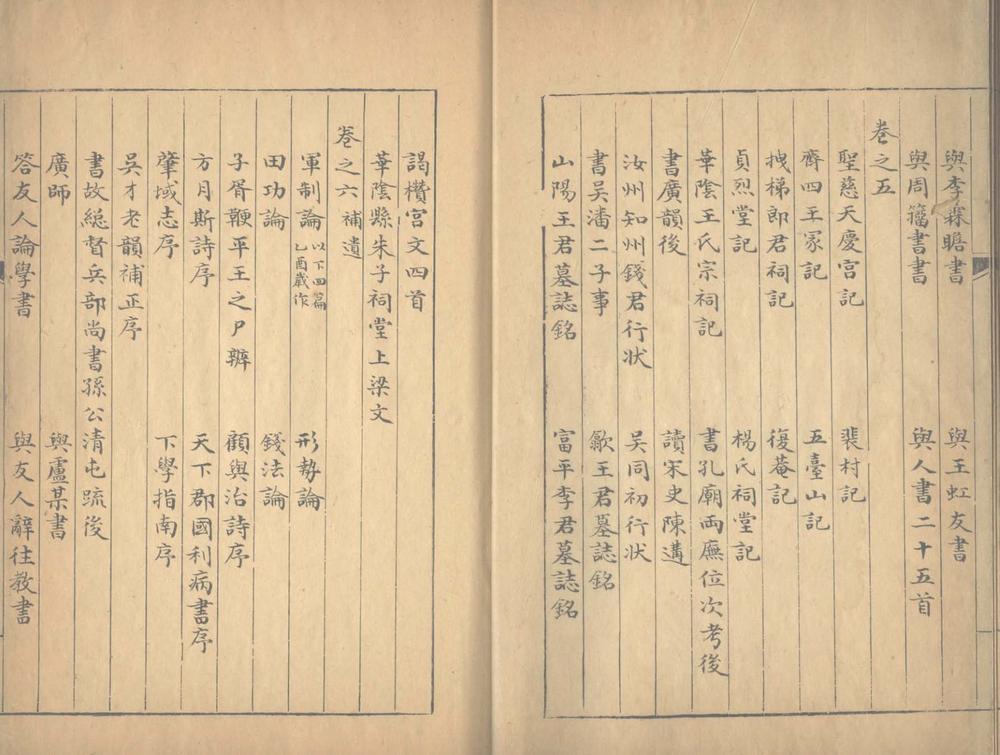 與李霖瞻書　與王虹友書
與周籀書書　與人書二十五首
卷之五
聖慈天慶宮記　裴村記
齊四王冢記　五臺山記
拽梯郎君祠記　復菴記
貞烈堂記　楊氏祠堂記
華陰王氏宗祠記　書孔廟兩廡位次考後
書廣韻後　讀宋史陳遘
汝州知州錢君行狀　吳同初行狀
書吳潘二子事　歙王君墓誌銘
山陽王君墓誌銘　富平李君墓誌銘
謁欑宮文四首
華陰縣朱子祠堂上梁文
卷之六補遺
軍制論以下四篇乙酉歲作　形勢論
田功論　錢法論
子胥鞭平王之尸辨　顧與治詩序
方月斯詩序　天下郡國利病書序
肇域志序　下學指南序
吳才老韻補正序
書故總督兵部尚書孫公清屯疏後
廣師　與盧某書
答友人論學書　與友人辭往教書